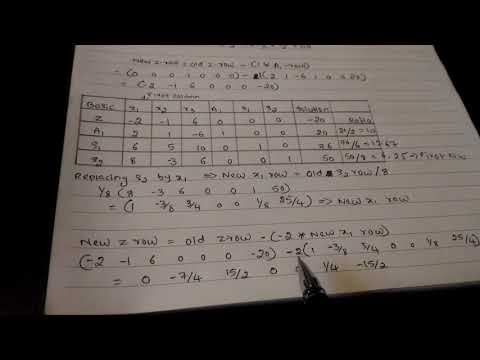 New z-row = old z-row - (1 * A₁-row)
= (0 0 0 1 0 0 0) - 1(2 1 -6 1 0 0 20)
= (-2 -1 6 0 0 0 -20)
Pivot column
Basic x₁ x₂ x₃ A₁ s₁ s₂ Solution
Z -2 -1 6 0 0 0 -20 Ratio
A₁ 2 1 -6 1 0 0 20 20/2 = 10
S₁ 6 5 10 0 1 0 76 76/6 = 12.67
S₂ 8 -3 6 0 0 1 50 50/8 = 6.25 → Pivot Row
Replacing s₂ by x₁ ⇒ New x₁ row = old s₂ row/8
1/8 (8 -3 6 0 0 1 50)
= (1 -3/8 3/4 0 0 1/8 25/4) ⇒ New x₁ row
New z row = old z row - (-2 * New x₁ row)
(-2 -1 6 0 0 0 -20) - -2(1 -3/8 3/4 0 0 1/8 25/4)
= 0 -7/4 15/2 0 0 1/4 -15/2